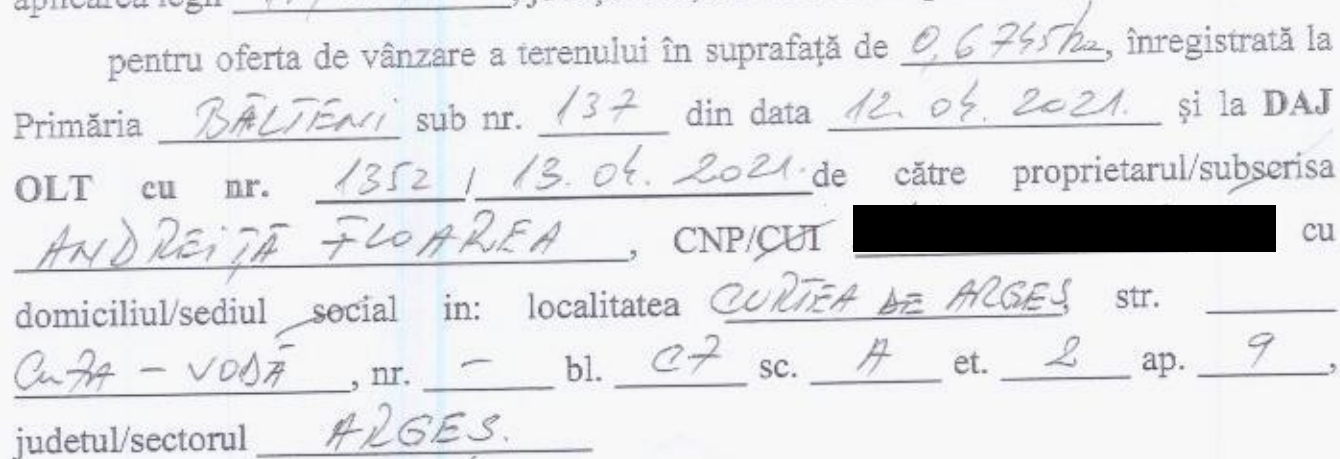 aplicarea legii
pentru oferta de vânzare a terenului în suprafață de 0,6745 ha, înregistrată la
Primăria BĂLTENI sub nr. 137 din data 12. 04. 2021. și la DAJ
OLT cu nr. 1352 / 13. 04. 2021. de către proprietarul/subscrisa
ANDREIȚĂ FLOAREA, CNP/CUI cu
domiciliul/sediul social in: localitatea CURTEA DE ARGEȘ str.
CUZA - VODĂ, nr. - bl. C7 sc. A et. 2 ap. 9,
judetul/sectorul ARGEȘ.